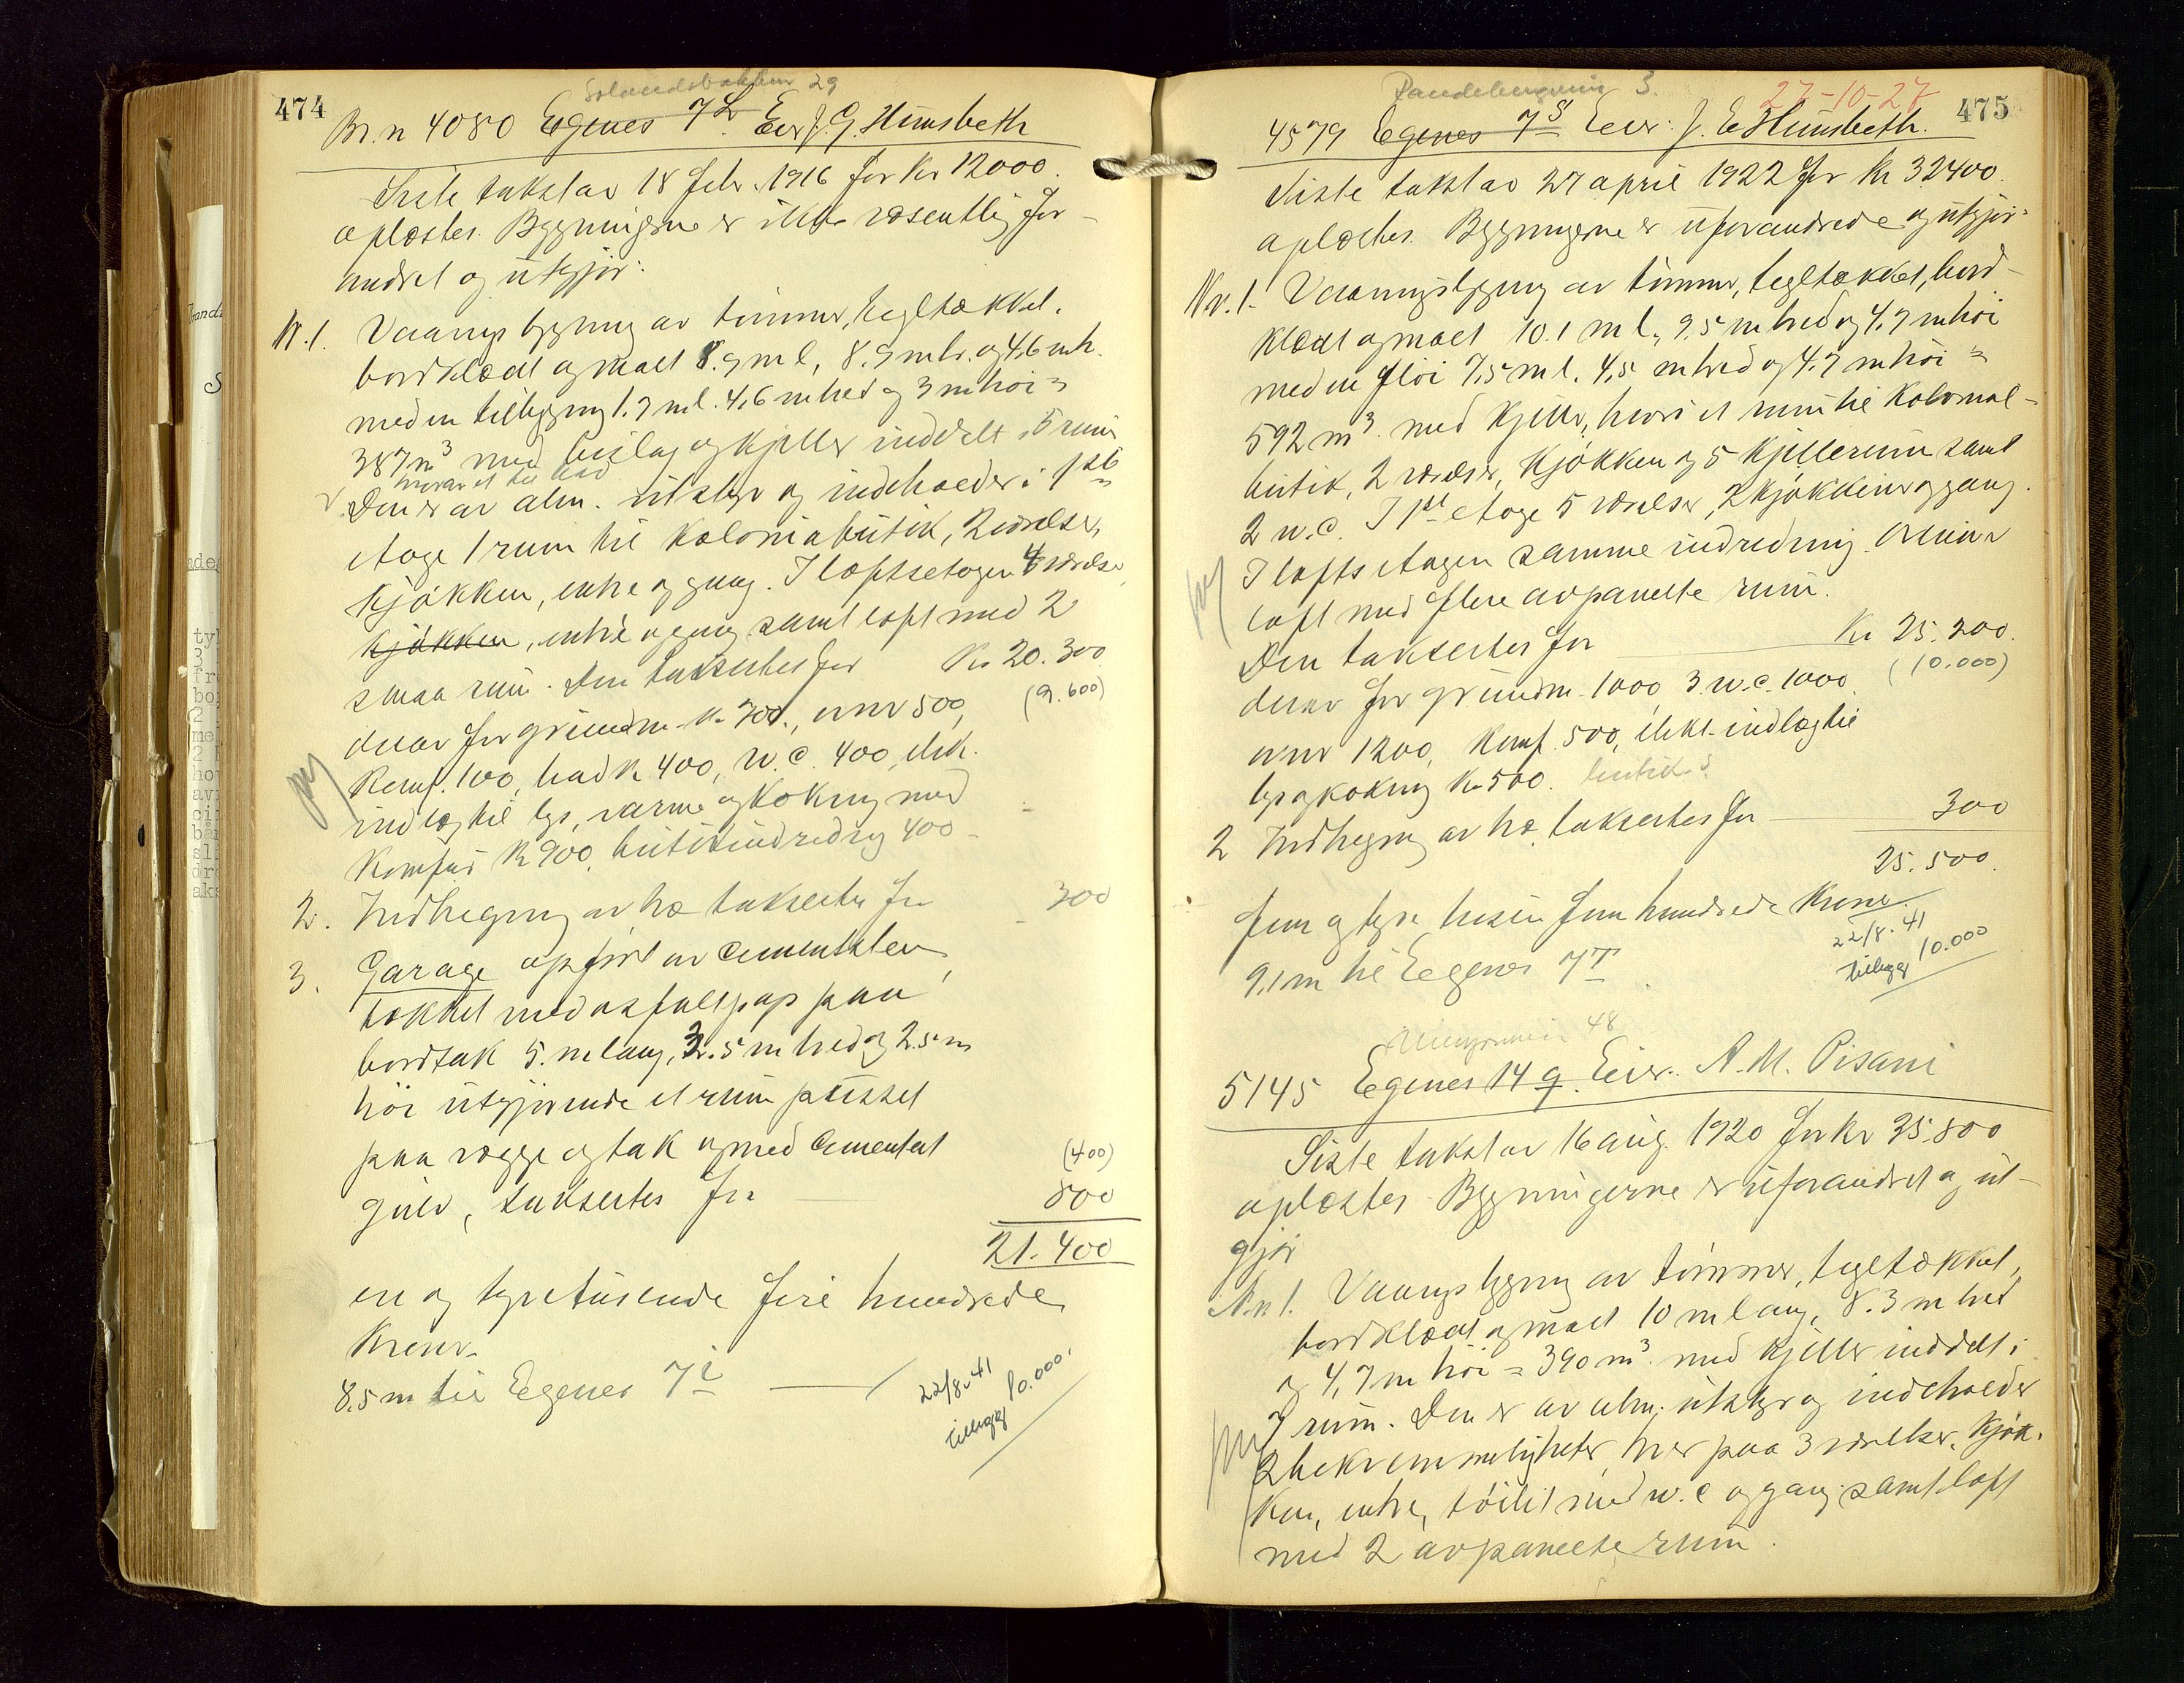 474
Solandsbakken 29
Br. n 4080 Egenes 7L Eier J. G. Himsbeth
Siste takst av 18 Febr. 1916 for Kr 12000.
oplæstes. Bygningerne er ikke væsentlig for-
andret og utgjør:
Nr. 1. Vaaningsbygning av tømmer, tegltækket,
bordklædt og malt 8.9 m l, 8.9 m br. og 4,6 m h.
med en tilbygning 1.9 m l. 4,6 m bred og 3 m høi =
387 m³ med bislag og kjeller inddelt i 5 rum
hvorav et til bad
Den er av alm. utstyr og indeholder i 1ste
etage 1 rum til kolonialbutik, 2 værelser,
kjøkken, entre og gang. I loftsetagen 4 værelser
kjøkken, entré og gang samt loft med 2
smaa rum. Den taksertes for Kr 20.300
derav for grundm. Kr 700., 500, (9.600)
Komf. 100, bad Kr 400, W.C. 400, elek.
indlæg til lys, varme og kokning med
Komfur Kr 900, butikindredning 400
2. Indhegning av træ taksertes for 300
3. Garage opført av cementsten,
tækket med asfaltpap paa
bordtak 5. m lang, 3.5 m bred og 2.5 m
høi utgjørende et rum pusset
paa vægge og tak og med cementert
gulv, taksertes for (400)
800
21.400
en og tyvetusende fire hundrede
Kroner.
8,5 m til Egenes 7i
22/8-41
tillegg 10.000.
475
27-10-27
4579 Egenes 7S Eier: J. E Himsbeth.
Siste takst av 27 april 1922 for Kr 32400.
oplæstes. Bygningerne er uforandrede og utgjør:
Nr. 1. Vaaningsbygning av tømmer, tegltækket, bord-
klædt og malt 10.1 m l., 9,5 m bred og 4,9 m høi
med en fløi 7,5 m l. 4,5 m bred og 4,7 m høi =
592 m³. med kjeller, hvori et rum til kolonial-
butik, 2 værelser, kjøkken og 5 kjellerrum samt
2 w.c. I 1ste etage 5 værelser, 2 kjøkkener og gang.
I loftsetagen samme indredning. Ovenover
loft med flere avpanelte rum.
Den taksertes for Kr 25.200.
derav for grundm. 1000 3 w.c. 1000 (10.000)
1200, Komf. 500, elekt. indlæg til
lys og kokning Kr 500.
2 Indhegning av træ, taksertes for 300
25.500.
Fem og tyve tusen fem hundrede Kroner.
9,1 m til Egenes 7T
22/8-41
tillegg 10.000
48
5145 Egenes 14 q. Eier: A. M. Pisani
Siste takst av 16 aug. 1920 for Kr 35.800
oplæstes. Bygningerne er uforandret og ut-
gjør
Nr. 1. Vaaningsbygning av tømmer, tegltækket,
bordklædt og malt 10 m lang, 8.3 m bred
og 4,7 m høi = 390 m³ med kjeller inddelt i
7 rum. Den er av alm. utstyr og indeholder
2 bekvemmeligheter, hver paa 3 værelser, kjøk-
ken, entre, toilet med w.c og gang samt loft
med 2 avpanelte rum.